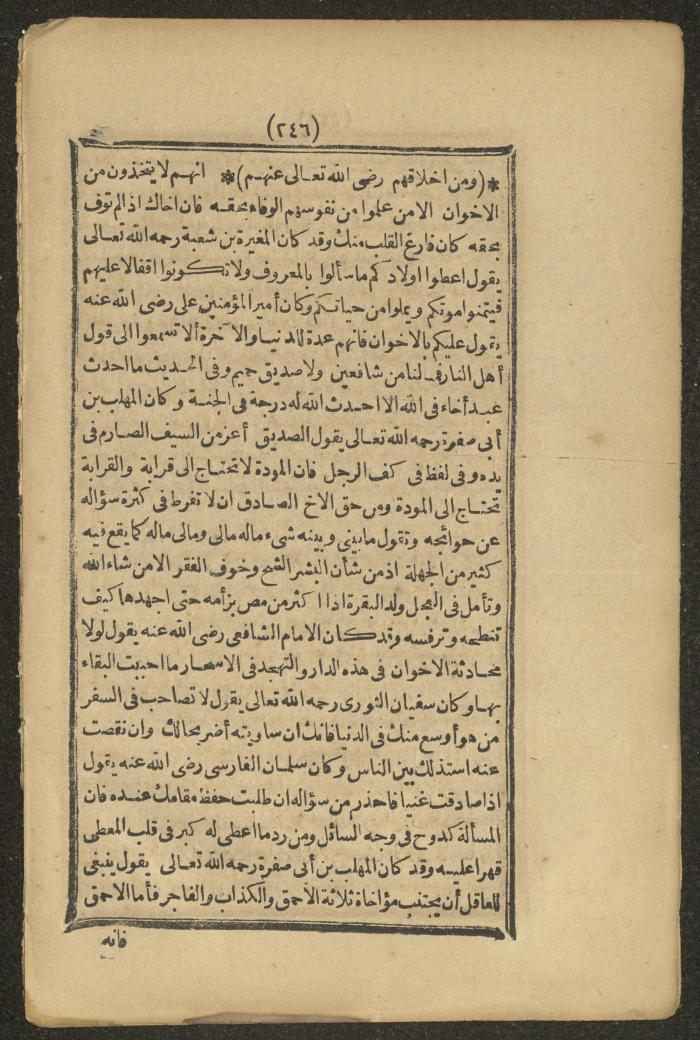 (٢٤٦)
*(ومن اخلاقهم رضى الله تعالى عنهم)* انهم لا يتخذون من
الاخوان الا من علموا من نفوسهم الوفاء بحقه فان اخاك اذا لم توف
بحقه كان فارغ القلب منك وقد كان المغيرة بن شعبة رحمه الله تعالى
يقول اعطوا اولادكم ما سألوا بالمعروف ولا تكونوا اقفالا عليهم
فيتمنوا موتكم ويملوا من حياتكم وكان أمير المؤمنين على رضى الله عنه
يقول عليكم بالاخوان فانهم عدة للدنيا والآخرة ألا تسمعوا الى قول
أهل النار فما لنا من شافعين ولا صديق حميم وفى الحديث ما احدث
عبد أخاء فى الله الا احدث الله له درجة فى الجنة وكان المهلب بن
أبى صفرة رحمه الله تعالى يقول الصديق أعز من السيف الصارم فى
يده وفى لفظ فى كف الرجل فان المودة لا تحتاج الى قرابة والقرابة
تحتاج الى المودة ومن حق الاخ الصادق ان لا تفرط فى كثرة سؤاله
عن حوائجه وتقول ما بينى وبينه شىء ماله مالى ومالى ماله كما يقع فيه
كثير من الجهلة اذ من شأن البشر الشح وخوف الفقر الا من شاء الله
وتأمل فى العجل ولد البقرة اذا اكثر من مص بز أمه حتى اجهدها كيف
تنطحه وترفسه وقد كان الامام الشافعى رضى الله عنه يقول لولا
محادثة الاخوان فى هذه الدار والتهجد فى الاسحار ما احببت البقاء
بها وكان سفيان الثورى رحمه الله تعالى يقول لا تصاحب فى السفر
من هو أوسع منك فى الدنيا فانك ان ساويته أضر بحالك وان نقصت
عنه استذلك بين الناس وكان سلمان الفارسى رضى الله عنه يقول
اذا صادقت غنيا فاحذر من سؤاله ان طلبت حفظ مقامك عنده فان
المسألة كدوح فى وجه السائل ومن رد ما اعطى له كبر فى قلب المعطى
قهرا عليه وقد كان المهلب بن أبى صفرة رحمه الله تعالى يقول ينبغى
للعاقل أن يجتنب مؤاخاة ثلاثة الأحمق والكذاب والفاجر فأما الاحمق
فانه